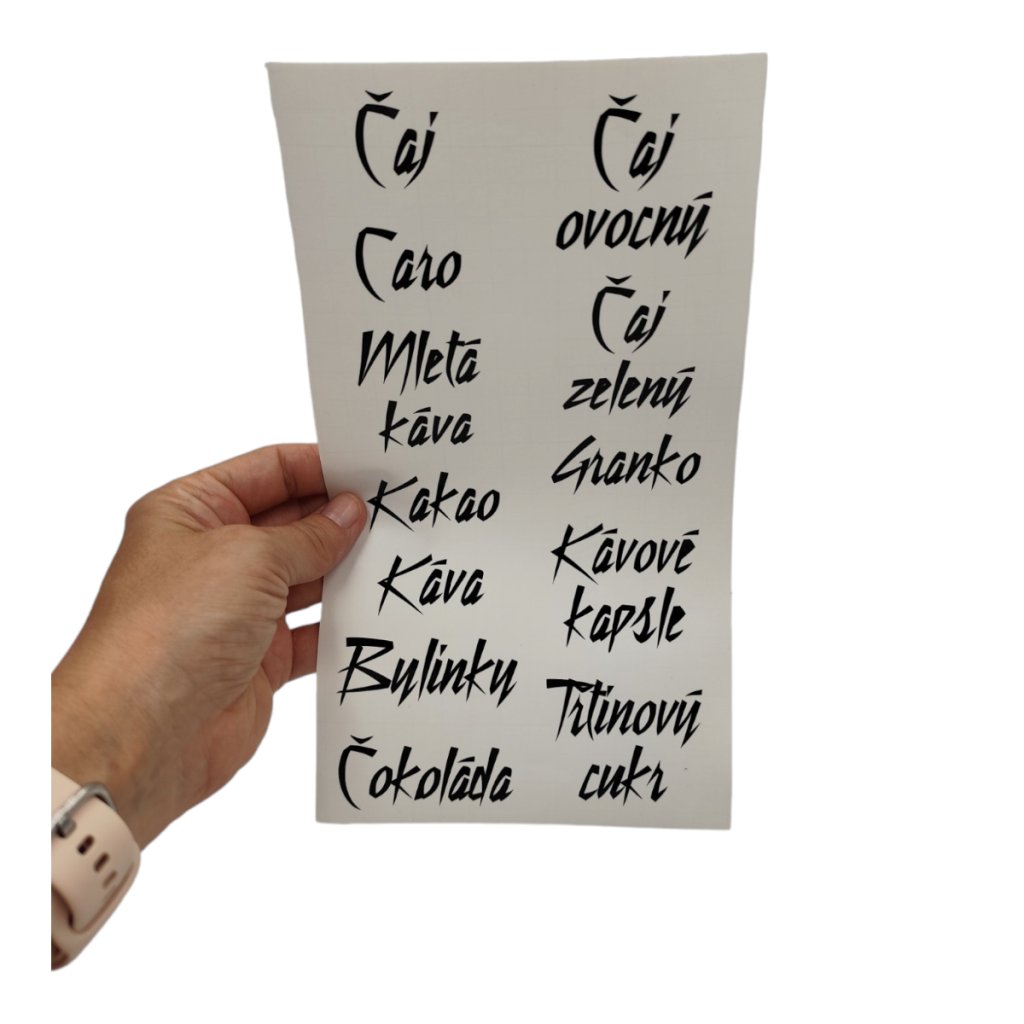 Čaj
Caro
Mletá
káva
Kakao
Káva
Bylinky
Čokoláda
Čaj
ovocný
Čaj
zelený
Granko
Kávové
kapsle
Třtinový
cukr